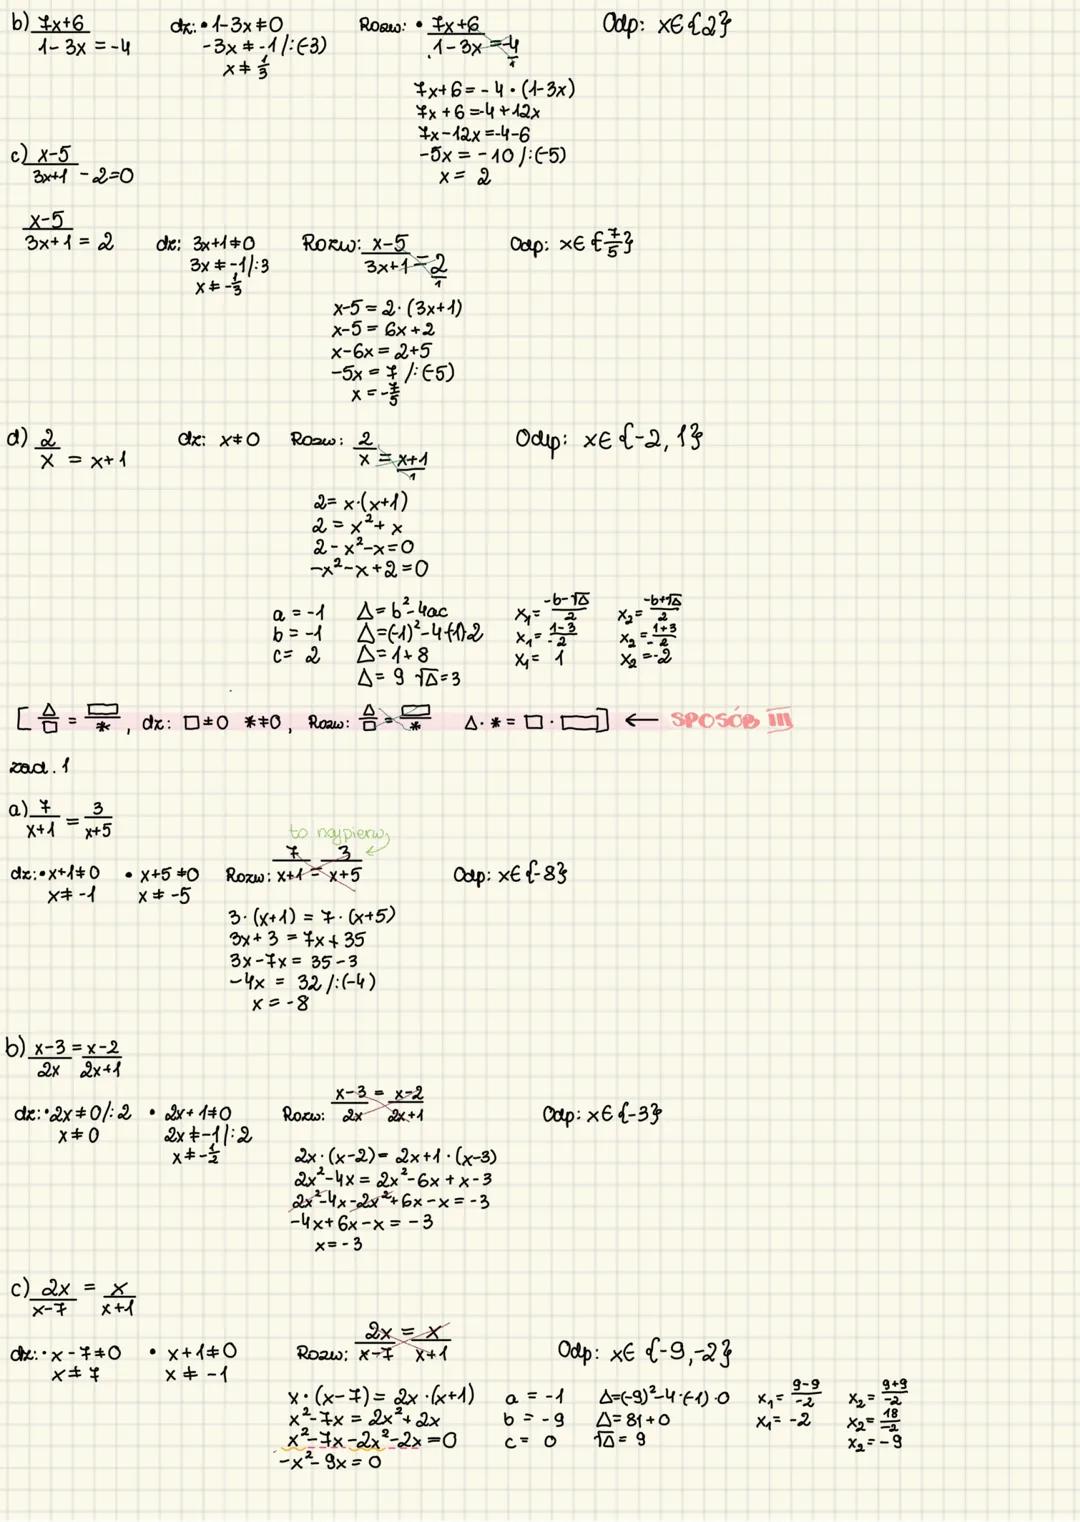 b) (7x+6)/(1-3x) = -4
dz: • 1-3x≠0
-3x ≠ -1 /:(-3)
x ≠ 1/3
Rozw: • (7x+6)/(1-3x) = -4/1
7x+6 = -4·(1-3x)
7x+6 = -4+12x
7x-12x = -4-6
-5x = -10 /:(-5)
x = 2
Odp: x∈{2}
c) (x-5)/(3x+1) - 2=0
(x-5)/(3x+1) = 2
dz: 3x+1≠0
3x ≠ -1/:3
x ≠ -1/3
Rozw: (x-5)/(3x+1) = 2/1
x-5 = 2·(3x+1)
x-5 = 6x+2
x-6x = 2+5
-5x = 7 /:(-5)
x = -7/5
Odp: x∈{7/5}
d) 2/x = x+1
dz: x≠0
Rozw: 2/x = (x+1)/1
2= x·(x+1)
2 = x²+x
2-x²-x=0
-x²-x+2=0
a = -1
b = -1
c= 2
Δ= b²-4ac
Δ=(-1)²-4·(-1)·2
Δ= 1+8
Δ= 9 √Δ=3
x₁= (-b-√Δ)/2
x₁= (1-3)/-2
x₁= 1
x₂= (-b+√Δ)/2
x₂= (1+3)/-2
x₂ =-2
Odp: x∈{-2, 1}
[ △/□ = ▭/*, dz: □≠0 *≠0, Rozw: △/□ = ▭/* △·* = □·▭ ] ← SPOSÓB III
zad. 1
a) 7/(x+1) = 3/(x+5)
dz: • x+1≠0
x≠ -1
• x+5≠0
x≠ -5
to najpierw
Rozw: 7/(x+1) = 3/(x+5)
3·(x+1) = 7·(x+5)
3x+3 = 7x+35
3x-7x = 35-3
-4x = 32 /:(-4)
x = -8
Odp: x∈{-8}
b) (x-3)/2x = (x-2)/(2x+1)
dz: • 2x≠0/:2
x≠0
• 2x+1≠0
2x≠-1/:2
x≠-1/2
Rozw: (x-3)/2x = (x-2)/(2x+1)
2x·(x-2)= 2x+1·(x-3)
2x²-4x = 2x²-6x+x-3
2x²-4x-2x²+6x-x = -3
-4x+6x-x = -3
x=-3
Odp: x∈{-3}
c) 2x/(x-7) = x/(x+1)
dz: • x-7≠0
x≠7
• x+1≠0
x≠ -1
Rozw: 2x/(x-7) = x/(x+1)
x·(x-7) = 2x·(x+1)
x²-7x = 2x²+2x
x²-7x-2x²-2x=0
-x²-9x=0
a = -1
b = -9
c= 0
Δ=(-9)²-4·(-1)·0
Δ= 81+0
√Δ= 9
x₁= (9-9)/-2
x₁= -2
x₂= (9+9)/-2
x₂= 18/-2
x₂= -9
Odp: x∈{-9,-2}